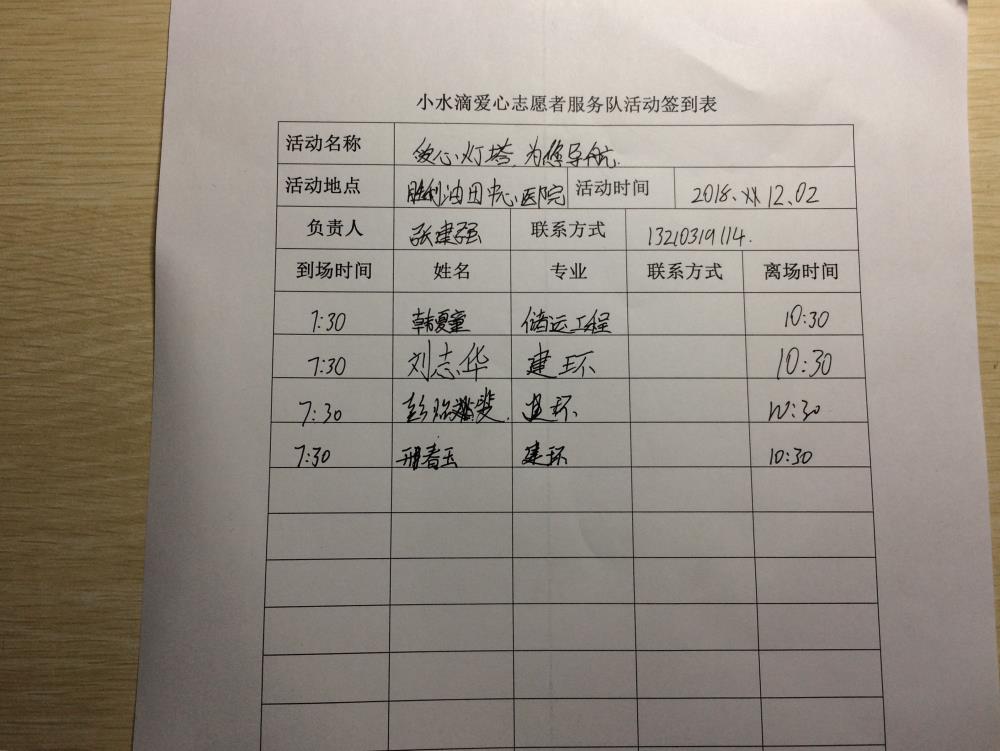 小水滴爱心志愿者服务队活动签到表
活动名称 爱心灯塔,为您导航.
活动地点 胜利油田中心医院 活动时间 2018. 12.02
负责人 张建强 联系方式 13210319114.
到场时间 姓名 专业 联系方式 离场时间
7:30 韩夏童 储运工程 10:30
7:30 刘志华 建环 10:30
7:30 建环 10:30
7:30 邢春玉 建环 10:30